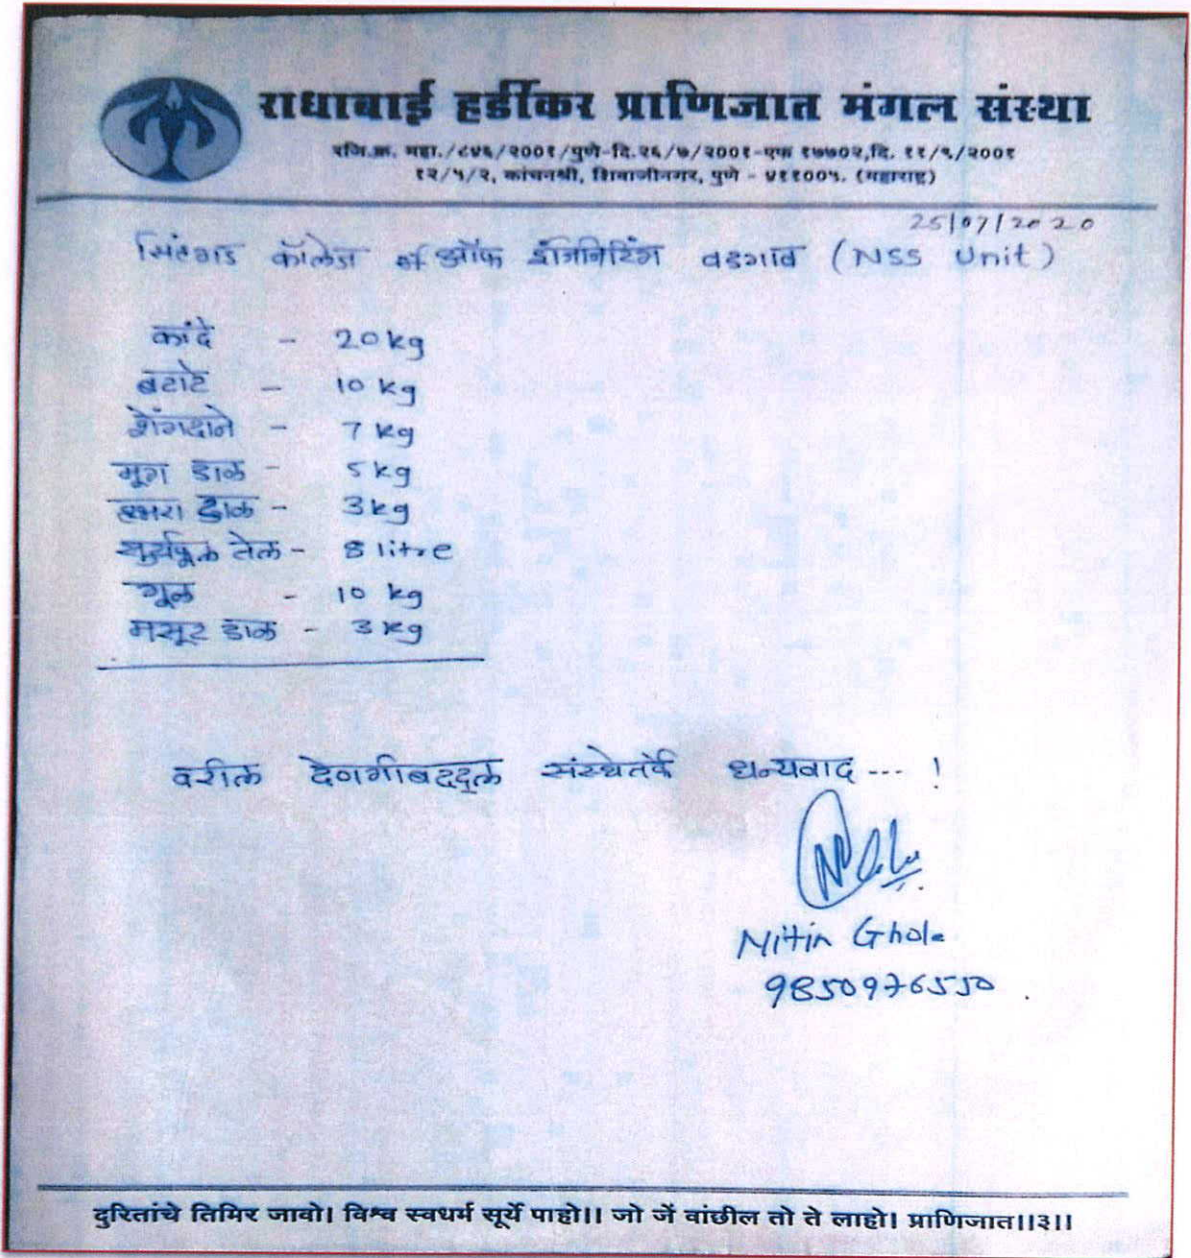 राधाबाई हर्डीकर प्राणिजात मंगल संस्था
रजि.क्र. महा./८४६/२००१/पुणे-दि.२६/७/२००१-एफ १७७०२,दि. ११/९/२००१
१२/५/२, कांचनश्री, शिवाजीनगर, पुणे - ४११००५. (महाराष्ट्र)
25/07/2020
सिंहगड कॉलेज ऑफ इंजिनिरिंग वडगाव (NSS Unit)
कांदे - 20 kg
बटाटे - 10 kg
शेंगदाने - 7 kg
मूग डाळ - 5 kg
हभरा डाळ - 3 kg
सूर्यफूल तेल - 8 litre
गूळ - 10 kg
मसूर डाळ - 3 kg
वरील देणगीबद्दल संस्थेतर्फे धन्यवाद --- !
Nitin Ghole
9850976550.
दुरितांचे तिमिर जावो। विश्व स्वधर्म सूर्ये पाहो।। जो जें वांछील तो ते लाहो। प्राणिजात।।३।।